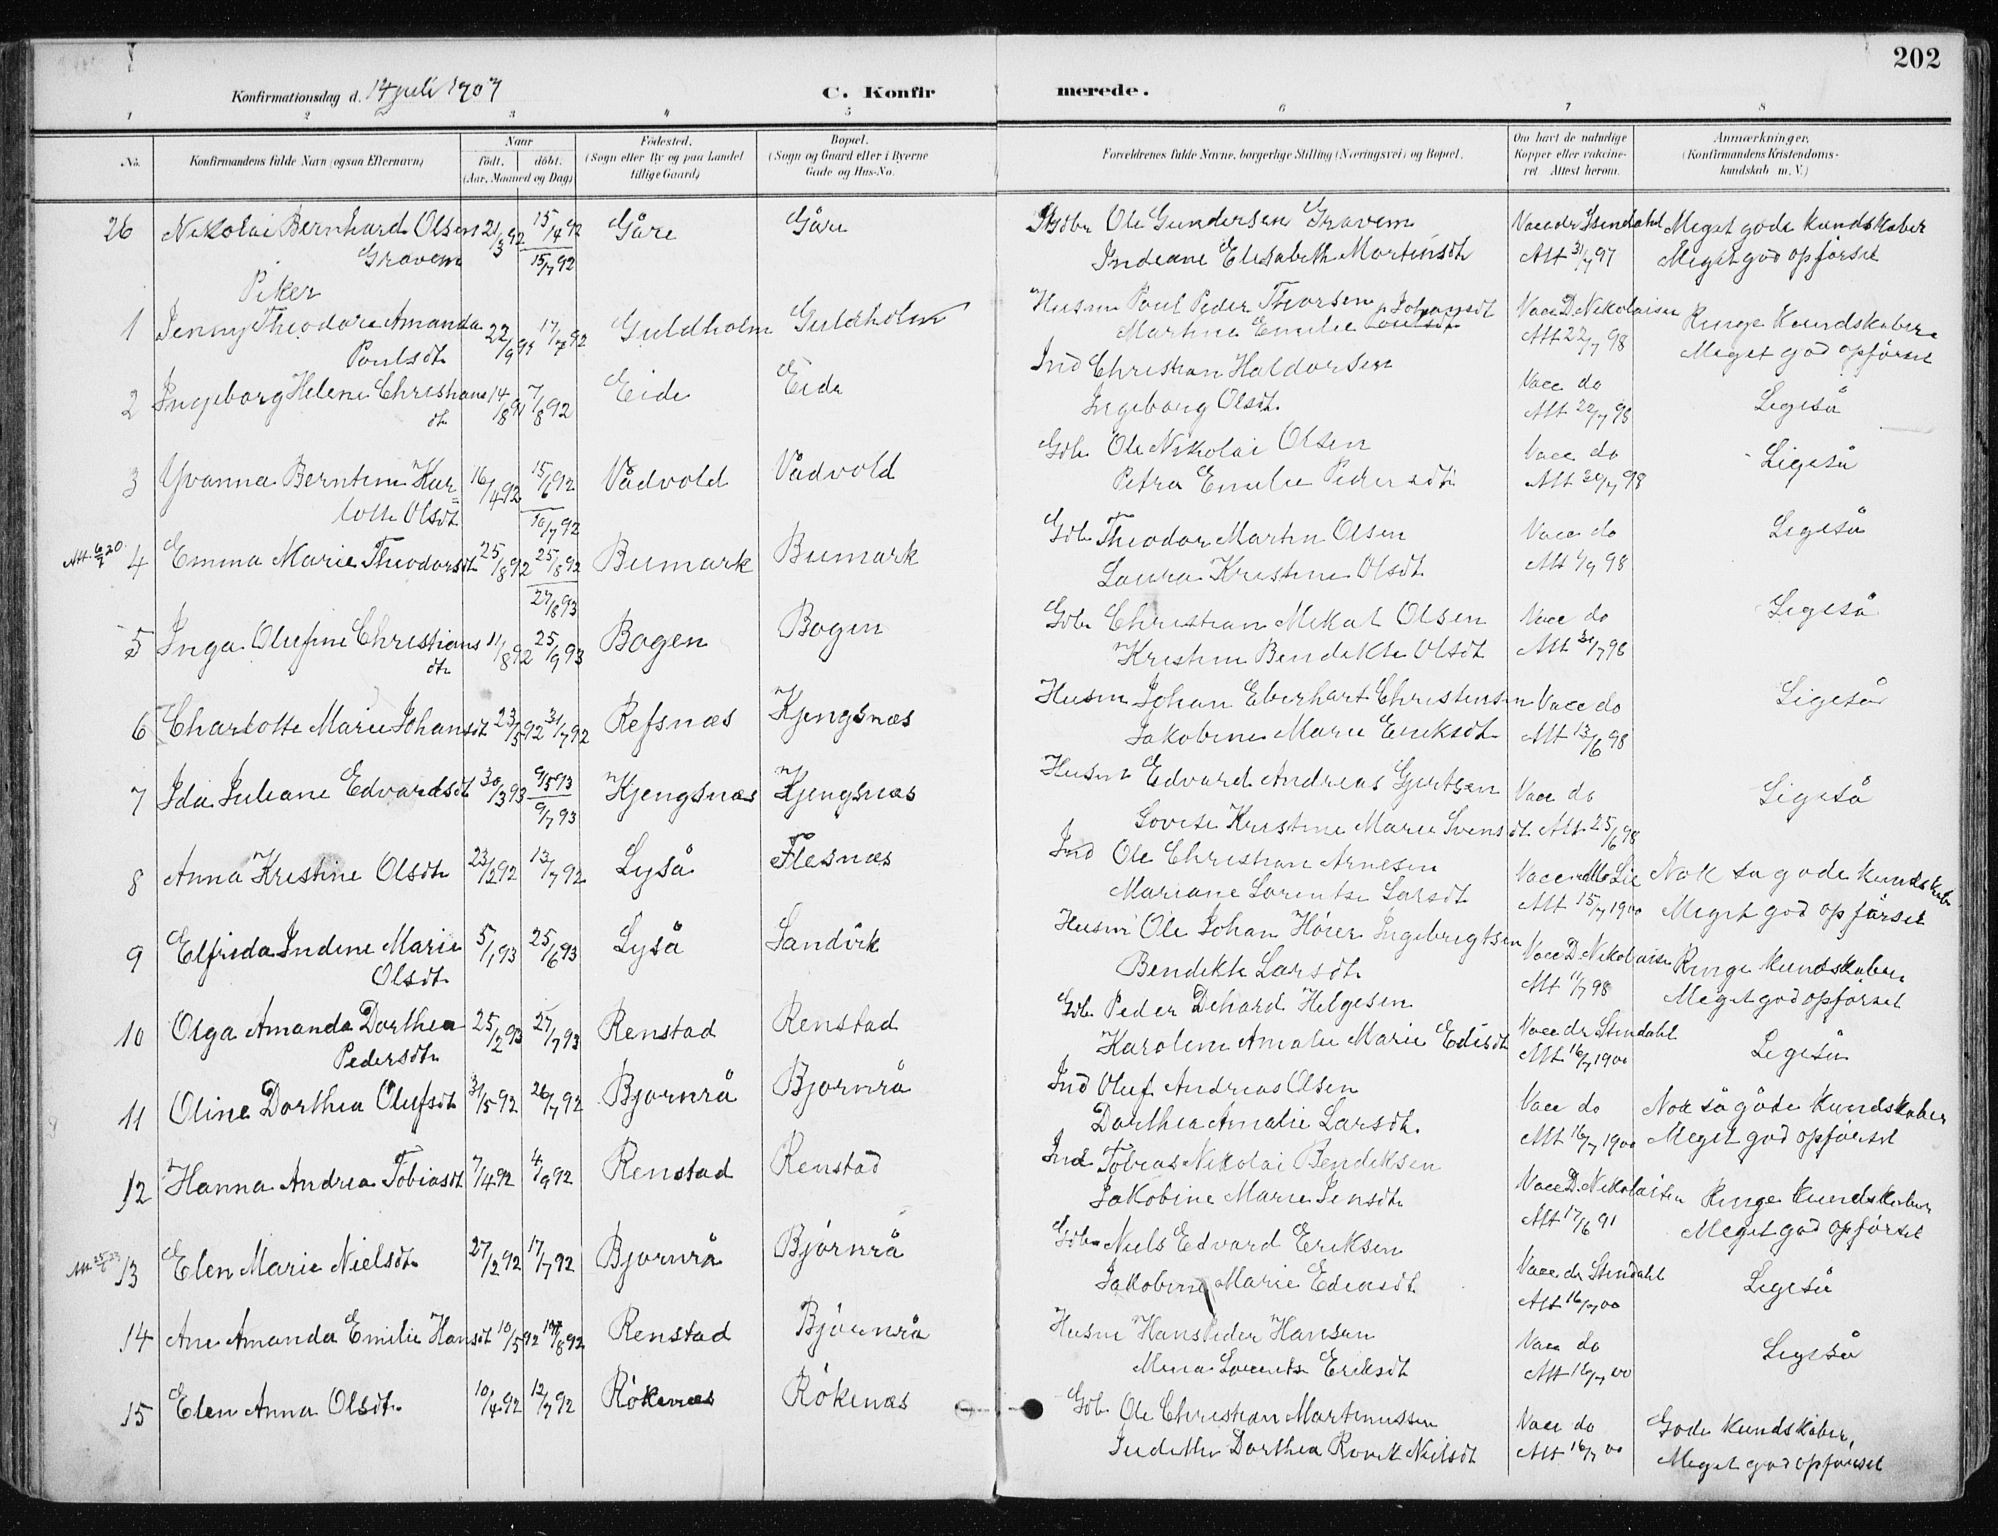 202
Konfirmationsdag d. 14 juli 1907 C. Konfirmerede.
1 2 3 4 5 6 7 8
No. Konfirmandens fulde Navn (ogsaa Efternavn) Naar født. døbt. (Aar, Maaned og Dag) Fødested. (Sogn eller By og paa Landet tillige Gaard) Bopæl. (Sogn og Gaard eller i Byerne Gade og Hus-No. Forældrenes fulde Navne, borgerlige Stilling (Næringsvei) og Bopæl. Om havt de naturlige Kopper eller vakcineret. Attest herom. Anmærkninger. (Konfirmandens Kristendomskundskab m. V.)
26 Nikolai Bernhard Olsen 21/3 92 15/4 92 Gåre Gåre Gdbr Ole Gundersen Gravem Vacc dr Stendahl Meget gode kundskaber
Gravem 15/7 92 Indiane Elisabeth Martinsdt Att 31/7 97 Meget god opførsel
Piker
1 Jenny Theodora Amanda 22/9 91 17/7 92 Guldholm Guldholm Husm Poul Peder Thorsen Vacc D. Nikolaisen Ringe Kundskaber
Poulsdt Martine Emilie Johansdt Att 22/7 98 Meget god opførsel
2 Ingeborg Helene Christians 14/8 91 7/8 92 Eide Eide Ind Christian Haldorsen Vacc do Ligeså
dt Ingeborg Olsdt. Att 22/7 98
3 Yvanna Berntine Kar= 16/4 92 15/6 92 Vådvold Vådvold Gdb Ole Nikolai Olsen Vacc do Ligeså
lotte Olsdt 10/7 92 Petra Emilie Pedersdt Att 20/7 98
Att. 6/2 20 4 Emma Marie Theodorsdt 25/8 92 25/8 92 Bumark Bumark Gdb Theodor Martin Olsen Vacc do Ligeså
27/8 93 Laura Kristine Olsdt Att 1/9 98
5 Inga Olufine Christians 11/8 92 25/9 93 Bogen Bogen Gdb Christian Mikal Olsen Vacc do Ligeså
dt Kristine Bendikte Olsdt Att 31/7 98
6 Charlotte Marie Johansdt 23/5 92 31/7 92 Refsnæs Kjengsnæs Husm Johan Eberhart Christensen Vacc do Ligeså
Jakobine Marie Eriksdt Att 13/6 98
7 Ida Juliane Edvardsdt 30/3 93 9/5 93 Kjengsnæs Kjengsnæs Husm Edvard Andreas Gjertsen Vacc do Ligeså
9/7 93 Lovise Kristine Marie Svensdt Att 25/6 98
8 Anna Kristine Olsdt 23/2 92 13/7 92 Lyså Flesnæs Ind Ole Christian Arnesen Vacc Lie Nok så gode kundskaber
Mariane Lorentse Larsdt Att 15/7 1900 Meget god opførsel
9 Elfrida Indine Marie 5/1 93 25/6 93 Lyså Sandvik Husm Ole Johan Høier Ingebrigtsen Vacc D. Nikolaisen Ringe kundskaber
Olsdt Bendikte Larsdt Att 11/7 98 Meget god opførsel
10 Olga Amanda Dorthea 25/2 93 27/7 93 Renstad Renstad Gdb Peder Dehard Helgesen Vacc dr Stendahl Ligeså
Pedersdt Karoline Amalie Marie Edisdt Att 16/7 1900
11 Oline Dorthea Olufsdt 31/5 92 26/7 92 Bjørnrå Bjørnrå Ind Oluf Andreas Olsen Vacc do Nok så gode kundskaber
Dorthea Amalie Larsdt. Att 16/7 1900 Meget god opførsel
12 Hanna Andrea Tobiasdt 7/4 92 4/9 92 Renstad Renstad Ind Tobias Nikolai Bendiksen Vacc D. Nikolaisen Ringe kundskaber
Jakobine Marie Jensdt. Att 17/6 91 Meget god opførsel
Att 25/6 23 13 Elen Marie Nielsdt. 27/2 92 17/7 92 Bjørnrå Bjørnrå Gdb Niels Edvard Eriksen Vacc dr Stendahl Ligeså
Jakobine Marie Edeasdt Att 16/7 00
14 Ane Amanda Emilie Hansdt 10/5 92 /8 92 Renstad Bjørnrå Husm Hans Peder Hansen Vacc do Ligeså
Mina Lorents Eriksdt Att 16/7 00
15 Elen Anna Olsdt. 10/4 92 12/7 92 Røkenæs Røkenæs Gdb Ole Christian Martinussen Vacc do Gode kundskaber,
Judithe Dorthea Rovik Nielsdt Att 16/7 00 Meget god opførsel